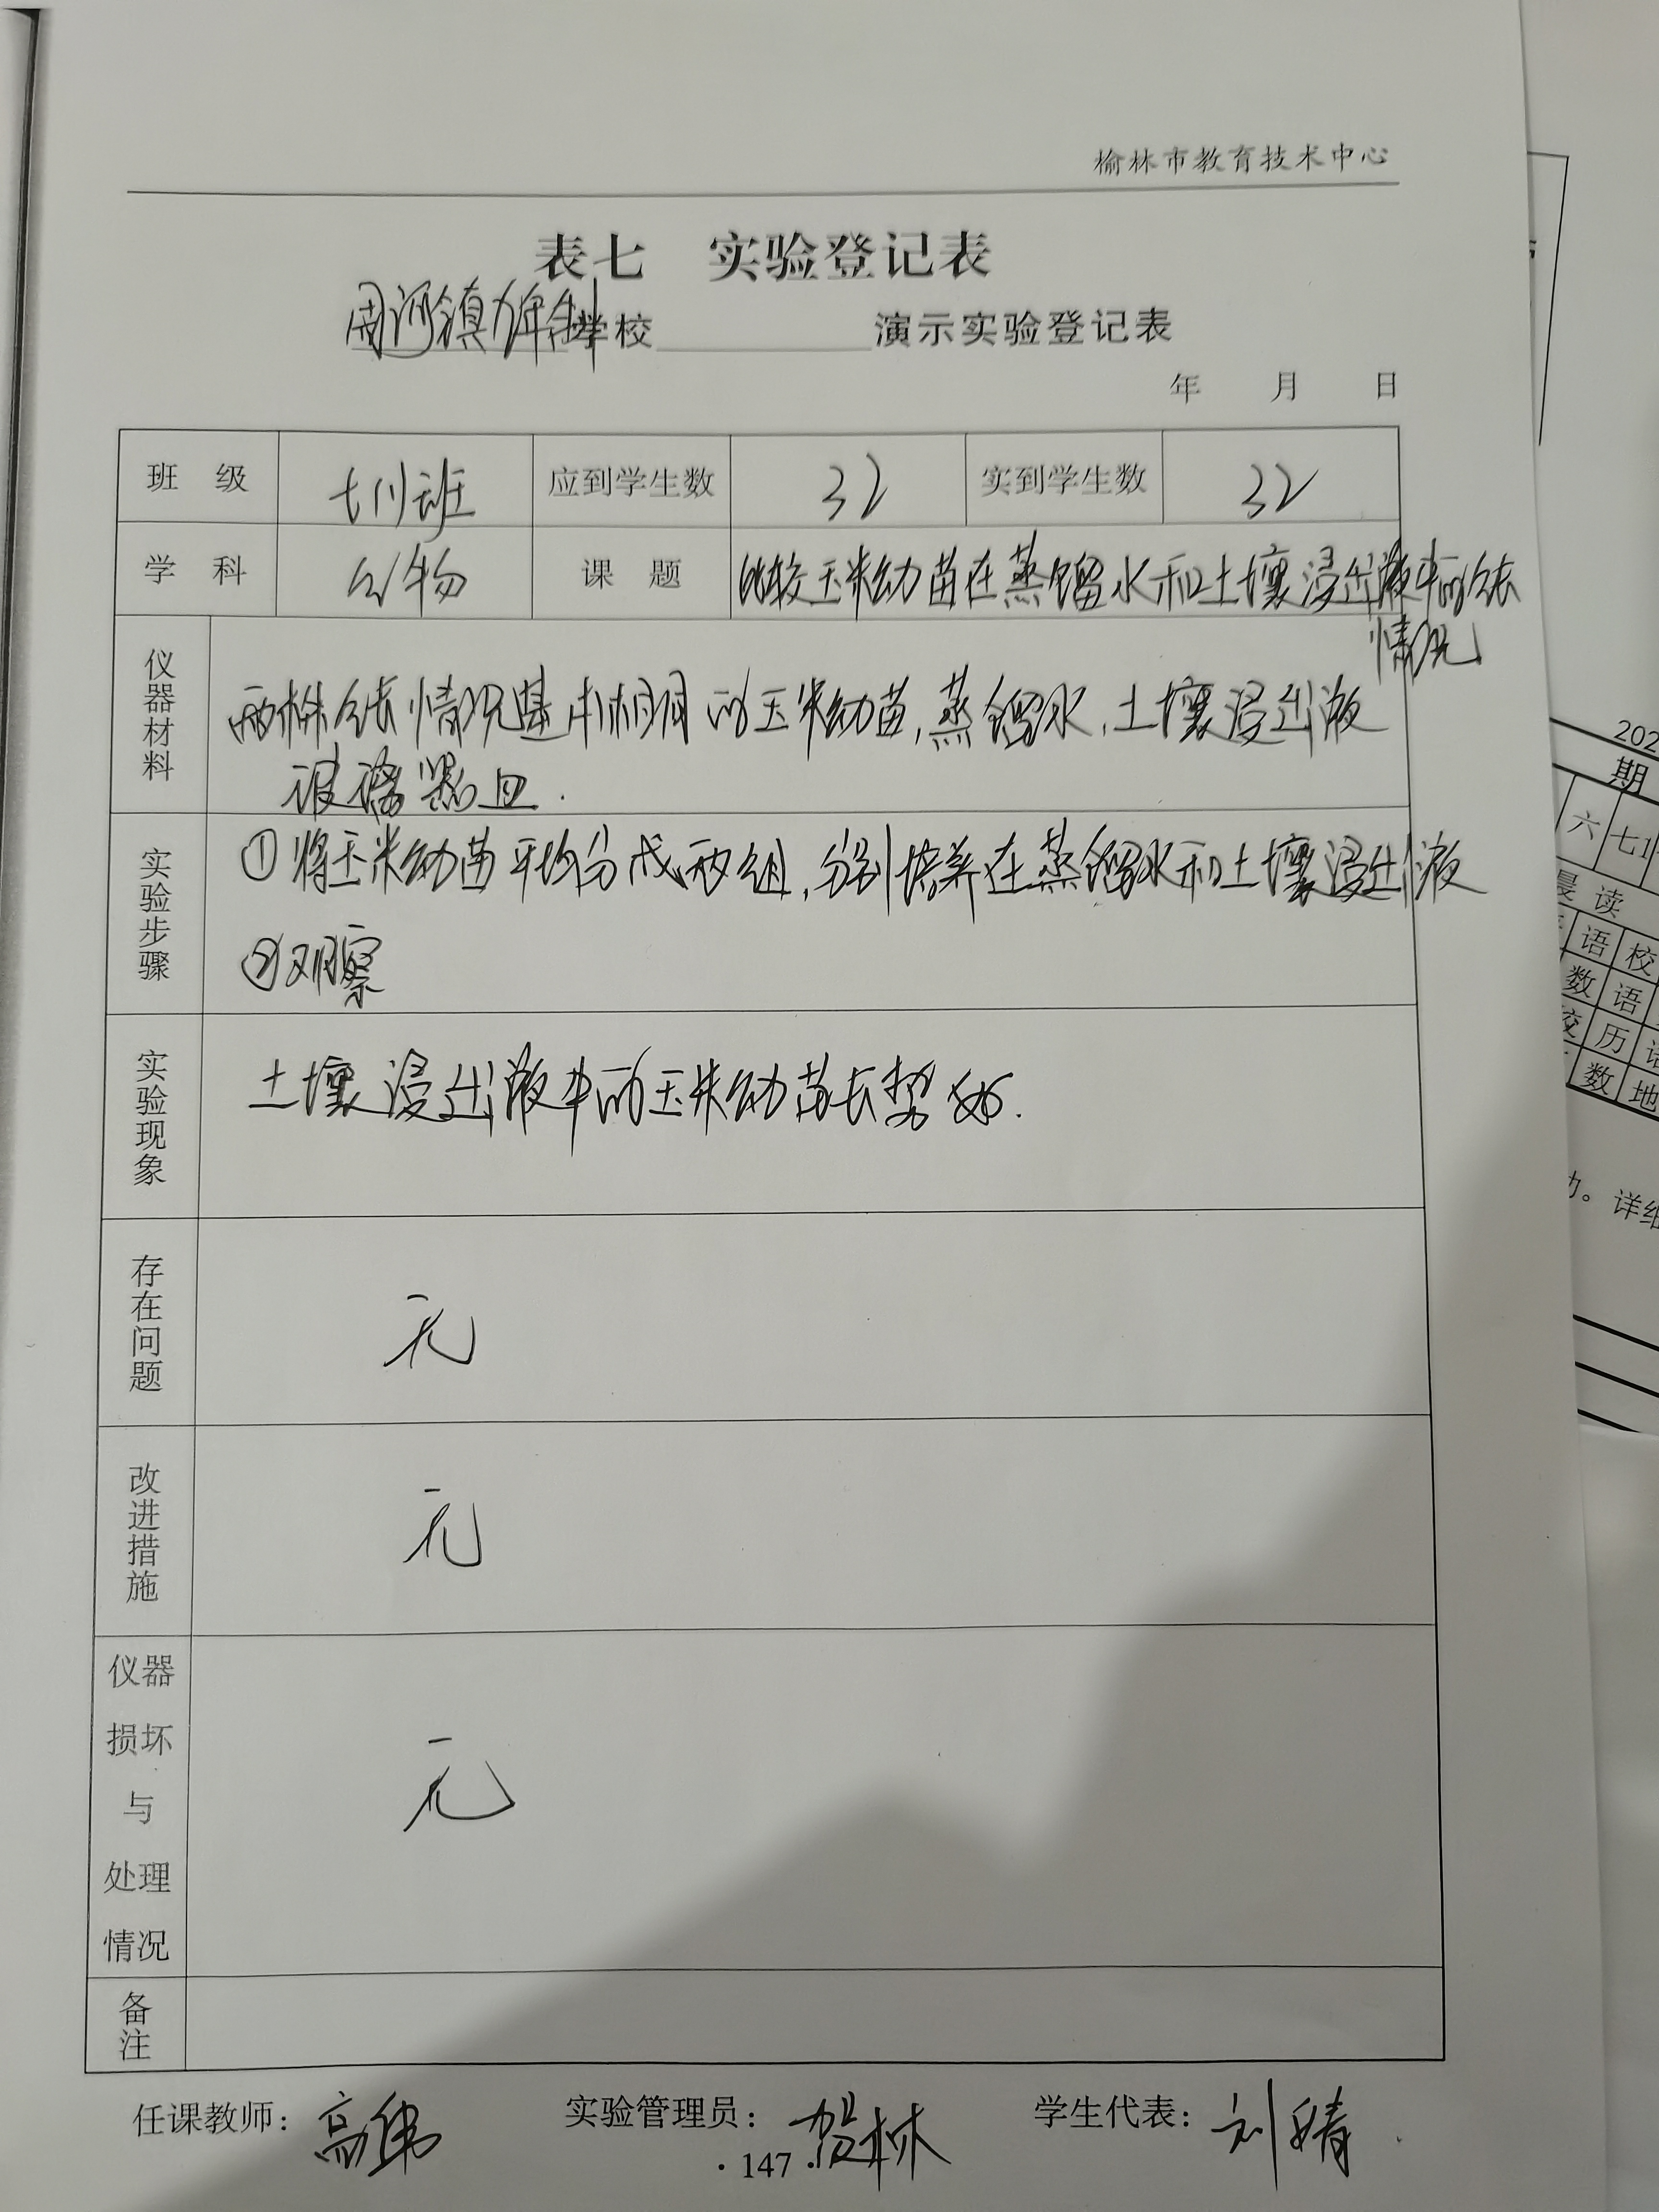 榆林市教育技术中心
表七 实验登记表
周河镇九年制学校________演示实验登记表
年 月 日
班 级 七(1)班 应到学生数 32 实到学生数 32
学 科 生物 课 题 比较玉米幼苗在蒸馏水和土壤浸出液中的生长
情况
仪器材料 两株生长情况基本相同的玉米幼苗,蒸馏水,土壤浸出液
玻璃器皿.
实验步骤 ①将玉米幼苗平均分成两组,分别培养在蒸馏水和土壤浸出液
②观察
实验现象 土壤浸出液中的玉米幼苗长势好.
存在问题 无
改进措施 无
仪器
损坏
与
处理
情况
无
备注
任课教师: 高伟 实验管理员: 贺林 学生代表: 刘婧
·147·
202
期
六 七1
晨 读
语 校
数 语
校 历 语
数 地
。详细